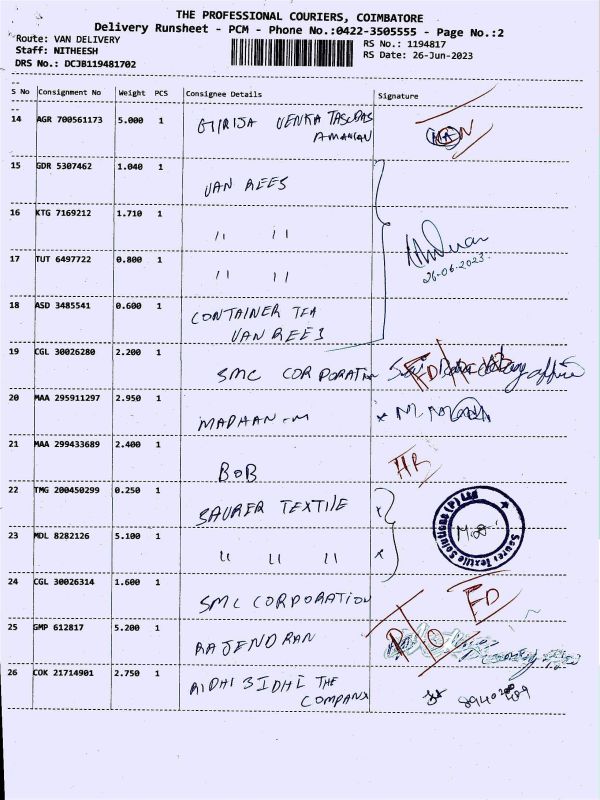 THE PROFESSIONAL COURIERS, COIMBATORE
Delivery Runsheet - PCM - Phone No.:0422-3505555 - Page No.:2
Route: VAN DELIVERY
RS No.: 1194817
Staff: NITHEESH
RS Date: 26-Jun-2023
DRS No.: DCJB119481702
S No Consignment No Weight PCS Consignee Details Signature
14 AGR 700561173 5.000 1 GIRIJA
15 GDR 5307462 1.040 1 VAN REES
16 KTG 7169212 1.710 1 " "
17 TUT 6497722 0.800 1 " "
26-06-2023
18 ASD 3485541 0.600 1 CONTAINER TEA
VAN REES
19 CGL 30026280 2.200 1 SMC CORPORATION
20 MAA 295911297 2.950 1 MADHAN-M
21 MAA 299433689 2.400 1 BOB
22 TMG 200450299 0.250 1 SAURER TEXTILE
23 MDL 8282126 5.100 1 " " "
24 CGL 30026314 1.600 1 SMC CORPORATION
25 GMP 612817 5.200 1 RAJENDRAN
26 COK 21714901 2.750 1 THE
COMPANY